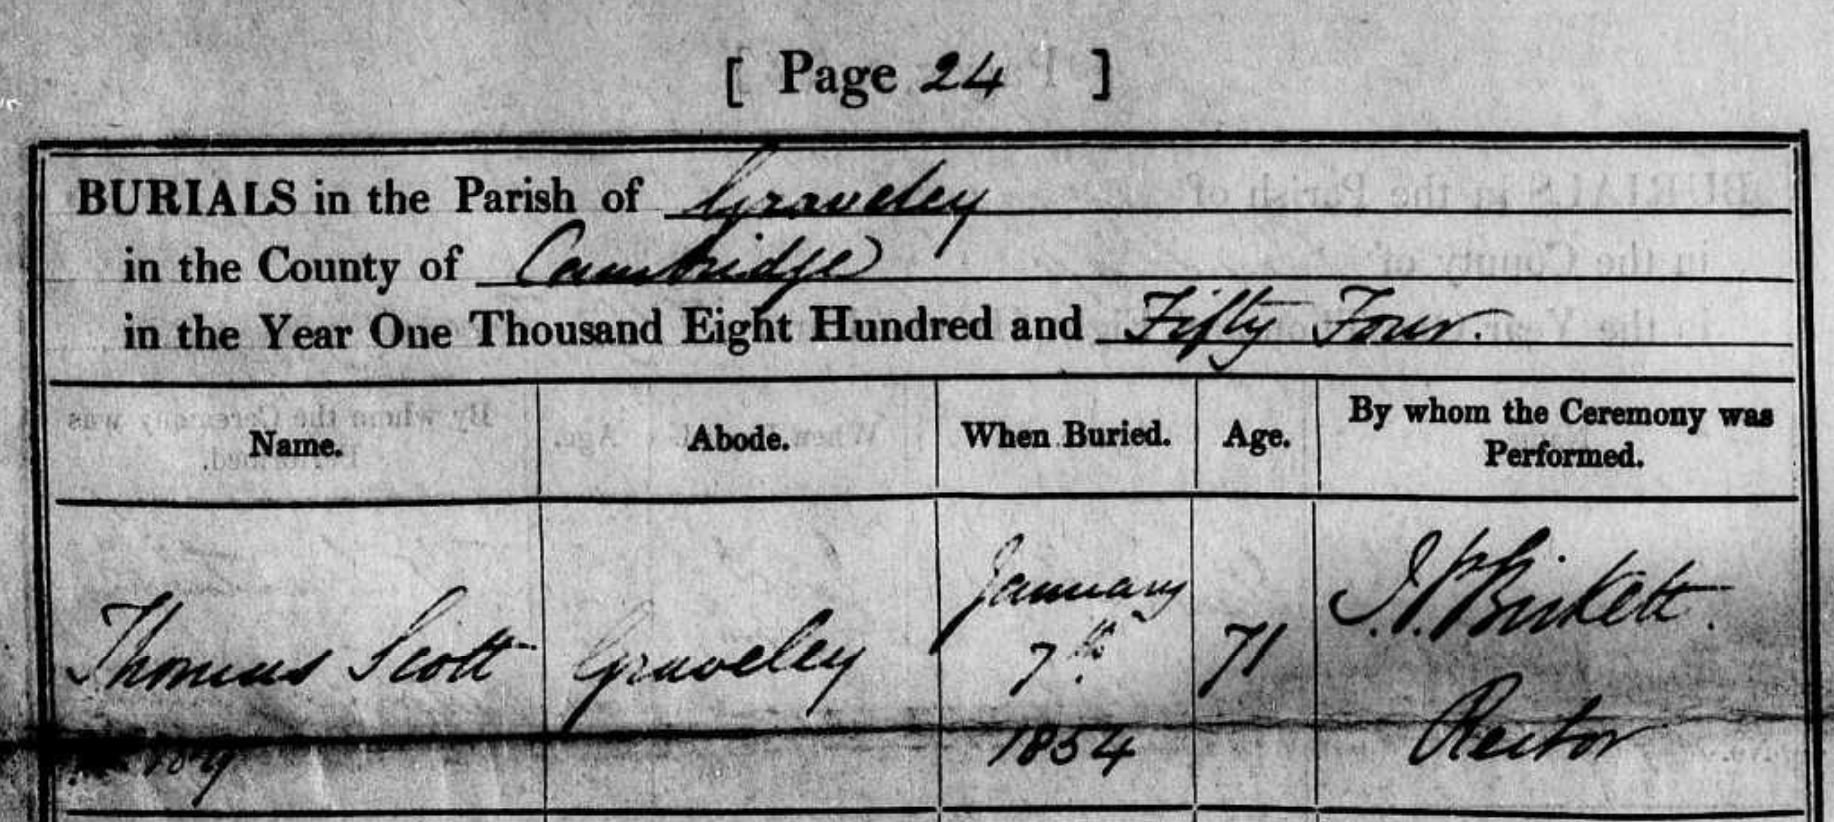 [ Page 24 ]
BURIALS in the Parish of Graveley
in the County of Cambridge
in the Year One Thousand Eight Hundred and Fifty Four.
Name. Abode. When Buried. Age. By whom the Ceremony was
Performed.
Thomas Scott
Graveley
January
7th
1854
71
J. P. Birkett.
Rector